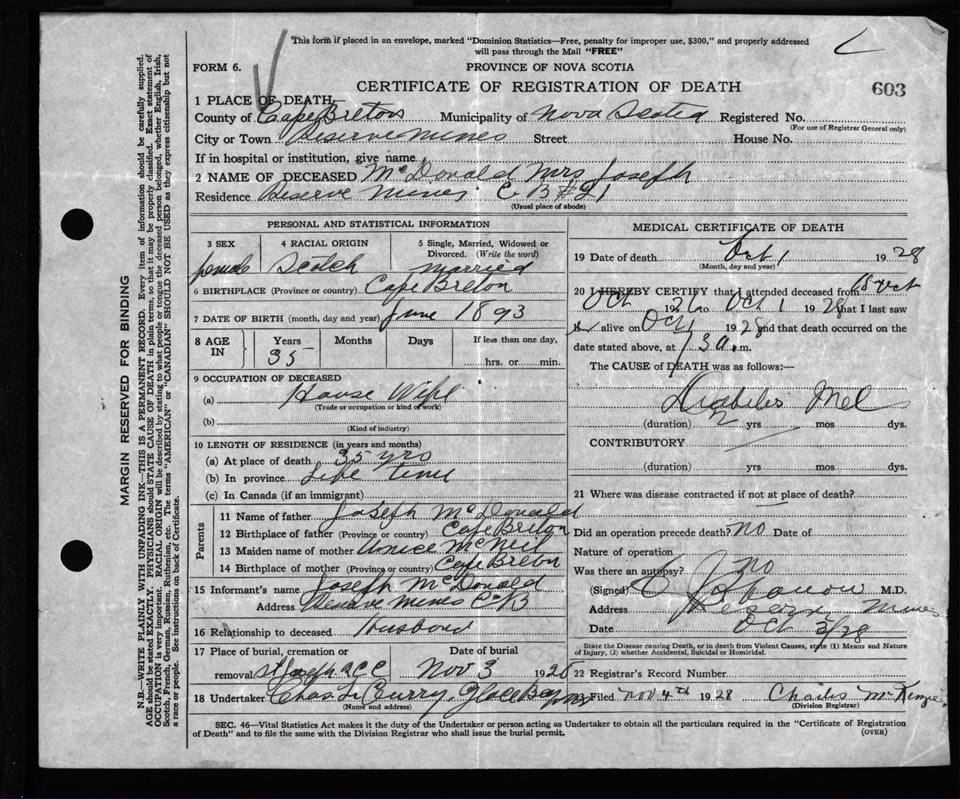 This form if placed in an envelope, marked "Dominion Statistics—Free, penalty for improper use, $300," and properly addressed
will pass through the Mail "FREE"
FORM 6.
PROVINCE OF NOVA SCOTIA
CERTIFICATE OF REGISTRATION OF DEATH
603
1 PLACE OF DEATH
County of Cape Breton Municipality of Nova Scotia Registered No.
(For use of Registrar General only)
City or Town Reserve Mines Street House No.
If in hospital or institution, give name
2 NAME OF DECEASED McDonald Mrs Joseph
Residence Reserve Mines C B #21
(Usual place of abode)
PERSONAL AND STATISTICAL INFORMATION
3 SEX 4 RACIAL ORIGIN 5 Single, Married, Widowed or
Divorced. (Write the word)
female Scotch married
6 BIRTHPLACE (Province or country) Cape Breton
7 DATE OF BIRTH (month, day and year) June 1893
8 AGE IN Years Months Days If less than one day,
35 hrs. or min.
9 OCCUPATION OF DECEASED
(a) House Wife
(Trade or occupation or kind of work)
(b)
(Kind of industry)
10 LENGTH OF RESIDENCE (in years and months)
(a) At place of death 35 yrs
(b) In province Life time
(c) In Canada (if an immigrant)
Parents
11 Name of father Joseph McDonald
12 Birthplace of father (Province or country) Cape Breton
13 Maiden name of mother McNeil
14 Birthplace of mother (Province or country) Cape Breton
15 Informant's name Joseph McDonald
Address Reserve Mines C B
16 Relationship to deceased Husband
17 Place of burial, cremation or Date of burial
removal Nov 3 1928
18 Undertaker Chas L Curry Glace Bay
(Name and address)
MEDICAL CERTIFICATE OF DEATH
19 Date of death Oct 1 1928
(Month, day and year)
20 I HEREBY CERTIFY that I attended deceased from
Oct 1926 to Oct 1 1928 that I last saw
alive on Oct 1 1928 and that death occurred on the
date stated above, at 130 a.m.
The CAUSE of DEATH was as follows:—
Diabetes Mel
(duration) 2 yrs mos dys.
CONTRIBUTORY
(duration) yrs mos dys.
21 Where was disease contracted if not at place of death?
Did an operation precede death? No Date of
Nature of operation
Was there an autopsy? No
(Signed) M.D.
Address Reserve Mines
Date Oct 3/28
State the Disease causing Death, or in death from Violent Causes, state (1) Means and Nature
of Injury, (2) whether Accidental, Suicidal or Homicidal.
22 Registrar's Record Number
23 Filed Nov 4th 1928 Charles McKenzie
(Division Registrar)
SEC. 46—Vital Statistics Act makes it the duty of the Undertaker or person acting as Undertaker to obtain all the particulars required in the "Certificate of Registration
of Death" and to file the same with the Division Registrar who shall issue the burial permit.
(OVER)
MARGIN RESERVED FOR BINDING
N.B—WRITE PLAINLY WITH UNFADING INK—THIS IS A PERMANENT RECORD. Every item of information should be carefully supplied.
AGE should be stated EXACTLY. PHYSICIANS should STATE CAUSE OF DEATH in plain terms, so that it may be properly classified. Exact statement of
OCCUPATION is very important. RACIAL ORIGIN will be described by stating to what people or tongue the deceased person belonged, whether English, Irish,
Scotch, French, German, Russian, Ruthenian, etc. The terms "AMERICAN" or "CANADIAN" SHOULD NOT BE USED as they express citizenship but not
a race or people. See instructions on back of Certificate.